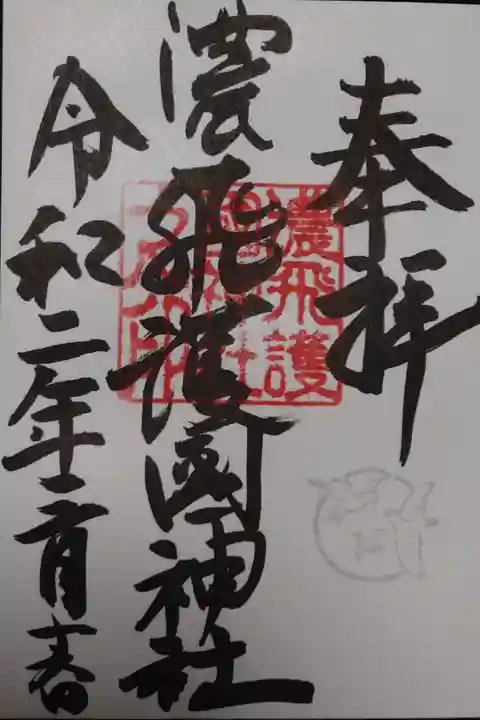 奉拝
濃飛護國神社
濃飛護
國神社
令和二年二月春